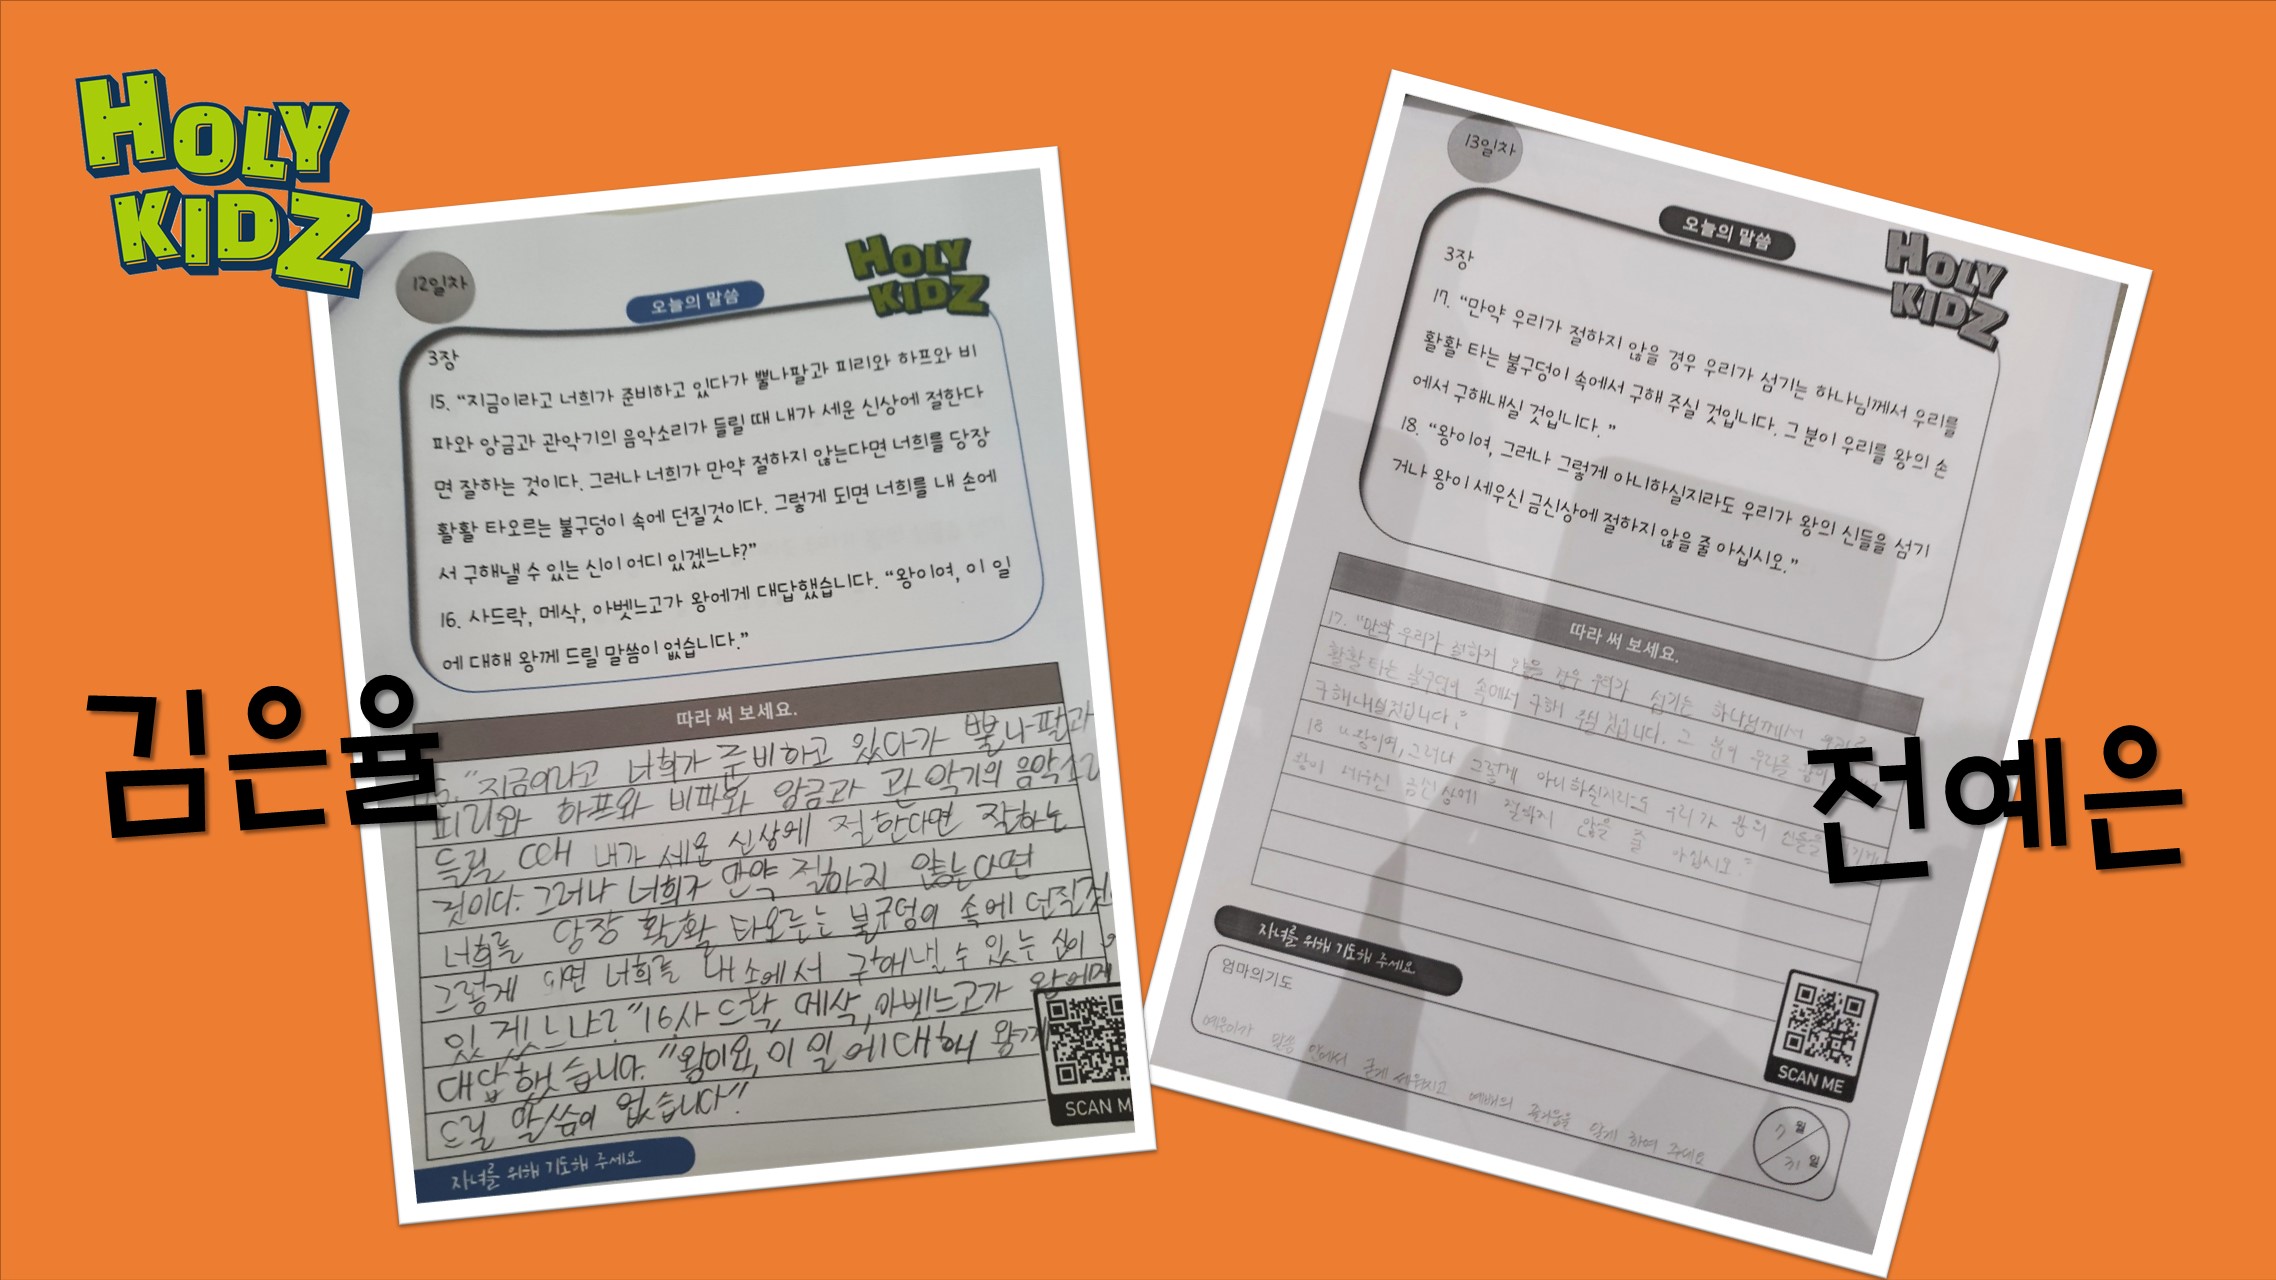 HOLY
KIDZ
12일차
오늘의 말씀
HOLY
KIDZ
3장
15. “지금이라고 너희가 준비하고 있다가 뿔나팔과 피리와 하프와 비
파와 앙금과 관악기의 음악소리가 들릴 때 내가 세운 신상에 절한다
면 잘하는 것이다. 그러나 너희가 만약 절하지 않는다면 너희를 당장
활활 타오르는 불구덩이 속에 던질것이다. 그렇게 되면 너희를 내 손에
서 구해낼 수 있는 신이 어디 있겠느냐?”
16. 사드락, 메삭, 아벳느고가 왕에게 대답했습니다. “왕이여, 이 일
에 대해 왕께 드릴 말씀이 없습니다.”
따라 써 보세요.
"지금이라고 너희가 준비하고 있다가 뿔나팔과
피리와 하프와 비파와 앙금과 관악기의 음악소리
들릴 때 내가 세운 신상에 절한다면 잘하는
것이다. 그러나 너희가 만약 절하지 않는다면
너희를 당장 활활 타오르는 불구덩이 속에 던질것
그렇게 되면 너희를 내 손에서 구해낼 수 있는 신이
있겠느냐?"16.사드락, 메삭,아벳느고가 왕에게
대답했습니다. "왕이여, 이 일에대해 왕께
드릴 말씀이 없습니다"
SCAN M
자녀를 위해 기도해 주세요
김은율
13일차
오늘의 말씀
HOLY
KIDZ
3장
17. “만약 우리가 절하지 않을 경우 우리가 섬기는 하나님께서 우리를
활활 타는 불구덩이 속에서 구해 주실 것입니다. 그 분이 우리를 왕의 손
에서 구해내실 것입니다. ”
18. “왕이여, 그러나 그렇게 아니하실지라도 우리가 왕의 신들을 섬기
거나 왕이 세우신 금신상에 절하지 않을 줄 아십시오.”
따라 써 보세요.
17. "만약 우리가 절하지 않을 경우 우리가 섬기는 하나님께서 우리를
활활 타는 불구덩이 속에서 구해 주실 것입니다. 그 분이 우리를 왕의
구해내실것입니다."
18 "왕이여, 그러나 그렇게 아니하실지라도 우리가 왕의 신들을
왕이 세우신 금신상에 절하지 않을 줄 아십시오."
자녀를 위해 기도해 주세요
엄마의기도
예은이가 말씀 안에서 굳게 세워지고 예배의 즐거움을 알게 하여 주세요
SCAN ME
7 월
31 일
전예은